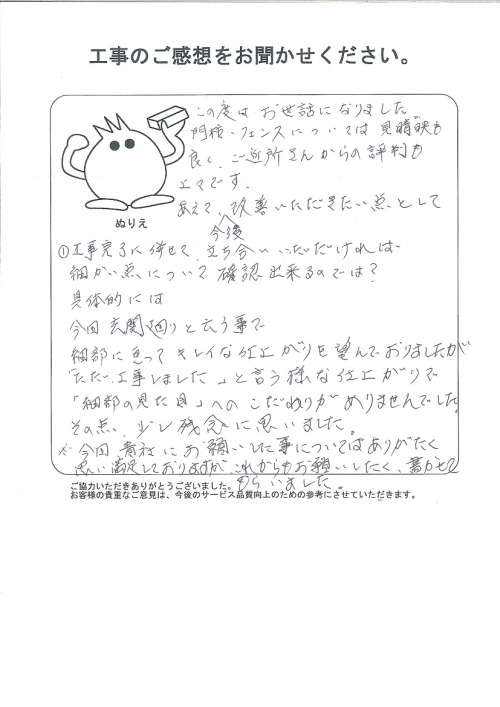 工事のご感想をお聞かせください。
この度は お世話になりました。
門檣・フェンスについては 見晴映も
良く、ご近所さんからの評判も
上々です。
あえて、改善いただきたい点として
今後
ぬりえ
①工事完了に併せて、立ち合いいただければ
細かい点について確認出来るのでは?
具体的には
今回玄関廻りと云う事で
細部に亘って キレイな仕上がりを望んでおりましたが
「ただ、工事しました」と言う様な仕上がりで
「細部の見た目」へのこだわりがありませんでした。
その点、少し残念に思いました。
※今回 貴社にお願いした事についてはありがたく
思い満足しておりますが、これからもお願いしたく、書かせて
もらいました。
ご協力いただきありがとうございました。
お客様の貴重なご意見は、今後のサービス品質向上のための参考にさせていただきます。